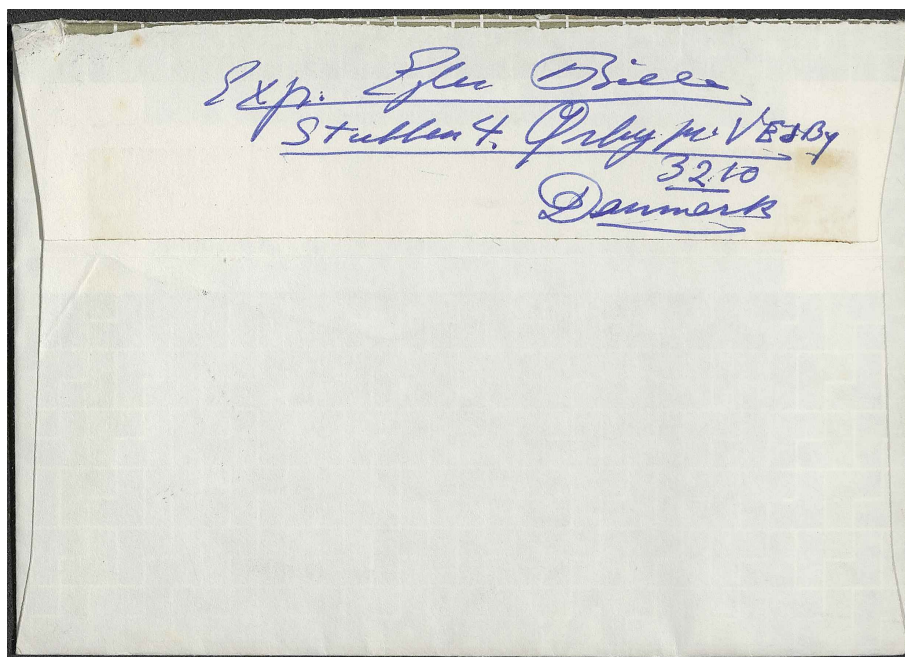 Exp: Ejler Bille
Stubben 4. Ørby pr. VEJBy
3210
Danmark